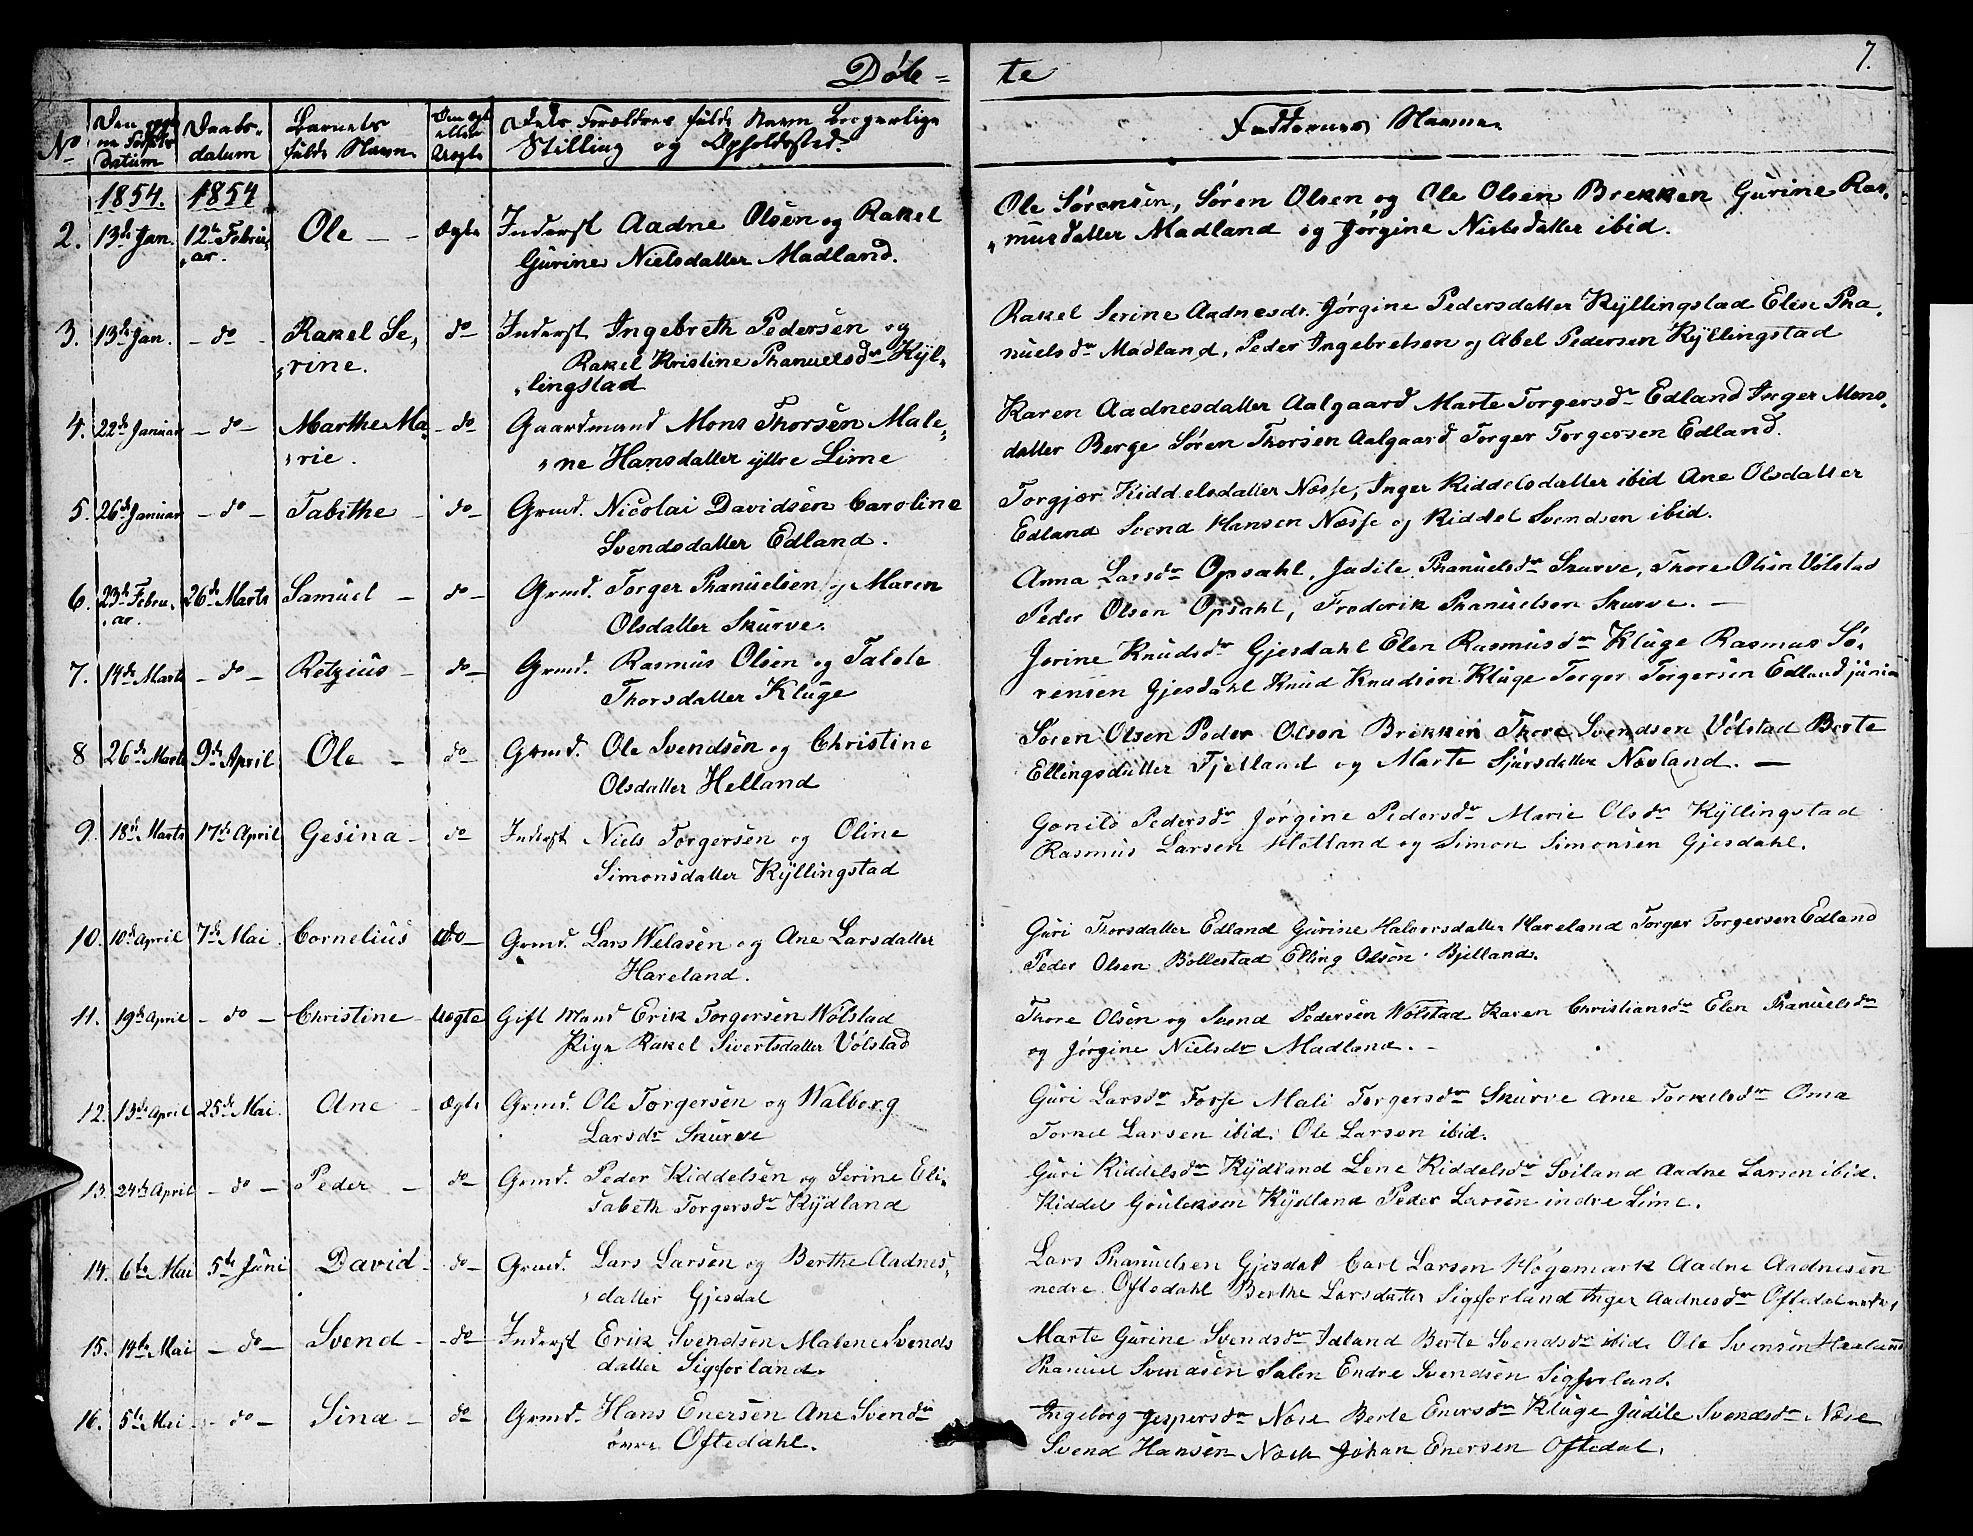 Døb= te 7.
No Den Fødsels datum Daabs- datum Barnets fulde Navn Ægte eller Uægte Dets Forældres fulde Navn Borgerlige Stilling og Opholdssted. Faddernes Navne
1854. 1854
2. 13de Jan. 12te Febru, Ole Ægte Inderst Aadne Olsen og Rakel Ole Sørensen, Søren Olsen og Ole Olsen Brekken Gurine Ras,
"ar. Gurine Nielsdatter Madland. "musdatter Madland og Jørgine Nielsdatter ibid.
3. 13de Jan. do Rakel Se, do Inderst Ingebreth Pedersen og Rakel Serine Aadnesdr. Jørgine Pedersdatter Kyllingstad Elen Pha,
"rine. Rakel Kristine Phanuelsdr Kyl, nuelsdr Madland, Peder Ingebretsen og Abel Pedersen Kyllingstad
"lingstad
4. 22de Januar do Marthe Ma, do Gaardmand Mons Thorsen Male, Karen Aadnesdatter Aalgaard Marte Torgersdr Edland Inger Mons,
"rie. "ne Hansdatter yttre Lime datter Berge Søren Thorsen Aalgaard Torger Torgersen Edland.
5. 26de Januar do Tabithe do Grmd. Nicolai Davidsen Caroline Torgjær Kiddelsdatter Næsse, Inger Kiddelsdatter ibid Ane Olsdatter
Svendsdatter Edland. Edland Svend Hansen Næsse og Kiddel Svendsen ibid.
6. 23de Febru, 26de Marts Samuel do Grmd. Torger Phanuelsen og Maren Anna Larsdr Opsahl, Judite Phanuelsdr Skurve, Thore Olsen Vølstad
"ar. Olsdatter Skurve. Peder Olsen Opsahl, Frederik Phanuelsen Skurve.
7. 14de Marts do Retzius do Grmd. Rasmus Olsen og Talete Jorine Knudsdr Gjesdahl Elen Rasmusdr Kluge Rasmus Sø,
Thorsdatter Kluge rensen Gjesdahl Knud Knudsen Kluge Torger Torgersen Edland junior
8 26de Marts 9de April Ole do Grmd. Ole Svendsen og Christine Søren Olsen Peder Olsen Brekken Thore Svendsen Vølstad Berte
Olsdatter Helland Ellingsdatter Fjelland og Marte Sjursdatter Nevland.
9. 18de Marts 17de April Gesina do Inderst Niels Torgersen og Oline Gonild Pedersdr Jørgine Pedersdr Marie Olsdr Kyllingstad
Simonsdatter Kyllingstad Rasmus Larsen Hotland og Simon Simonsen Gjesdahl.
10. 10de April 7de Mai Cornelius do Grmd. Lars Welasen og Ane Larsdatter Guri Thorsdatter Edland Gurine Halvorsdatter Hareland Torger Torgersen Edland
Hareland. Peder Olsen Bollestad Elling Olsen Bjelland.
11. 19de April do Christine Uægte Gift Mand Erik Torgersen Wølstad Thore Olsen og Svend Pedersen Wølstad Karen Christiansdr Elen Phanuelsdr
Pige Rakel Sivertsdatter Vølstad og Jørgine Nielsdr Madland.
12. 13de April 25de Mai. Ane Ægte Grmd. Ole Torgersen og Walborg Guri Larsdr Fosse Mali Torgersdr Skurve Ane Torkelsdr Oma
Larsdr Skurve Torkel Larsen ibid. Ole Larsen ibid.
13. 24de April do Peder do Grmd. Peder Kiddelsen og Serine Eli, Guri Kiddelsdr Kydland Lene Kiddelsdr Sviland Aadne Larsen ibid.
sabeth Torgersdr Kydland Kiddel Gouleksen Kydland Peder Larsen indre Lime.
14. 6te Mai 5te Juni David do Grmd. Lars Larsen og Berthe Aadnes, Lars Phanuelsen Gjesdal Carl Larsen Høgemark Aadne Aadnesen
"datter Gjesdal nedre Oftedahl Berthe Larsdatter Sigforland Inger Aadnesdr Oftedal nedre
15. 14de Mai do Svend do Inderst Erik Svendsen Malene Svends Marte Gurine Svendsdr Idland Berte Svendsdr ibid. Ole Svensen Haaland
datter Sigforland. Phanuel Svendsen Salen Endre Svendsen Sigforland.
16. 5te Mai do Sina do Grmd. Hans Enersen Ane Svendsdr Ingeborg Jespersdr Nose Berte Enersdr Kluge Judite Svendsdr Nose
øvre Oftedahl. Svend Hansen Johan Enersen Oftedal.